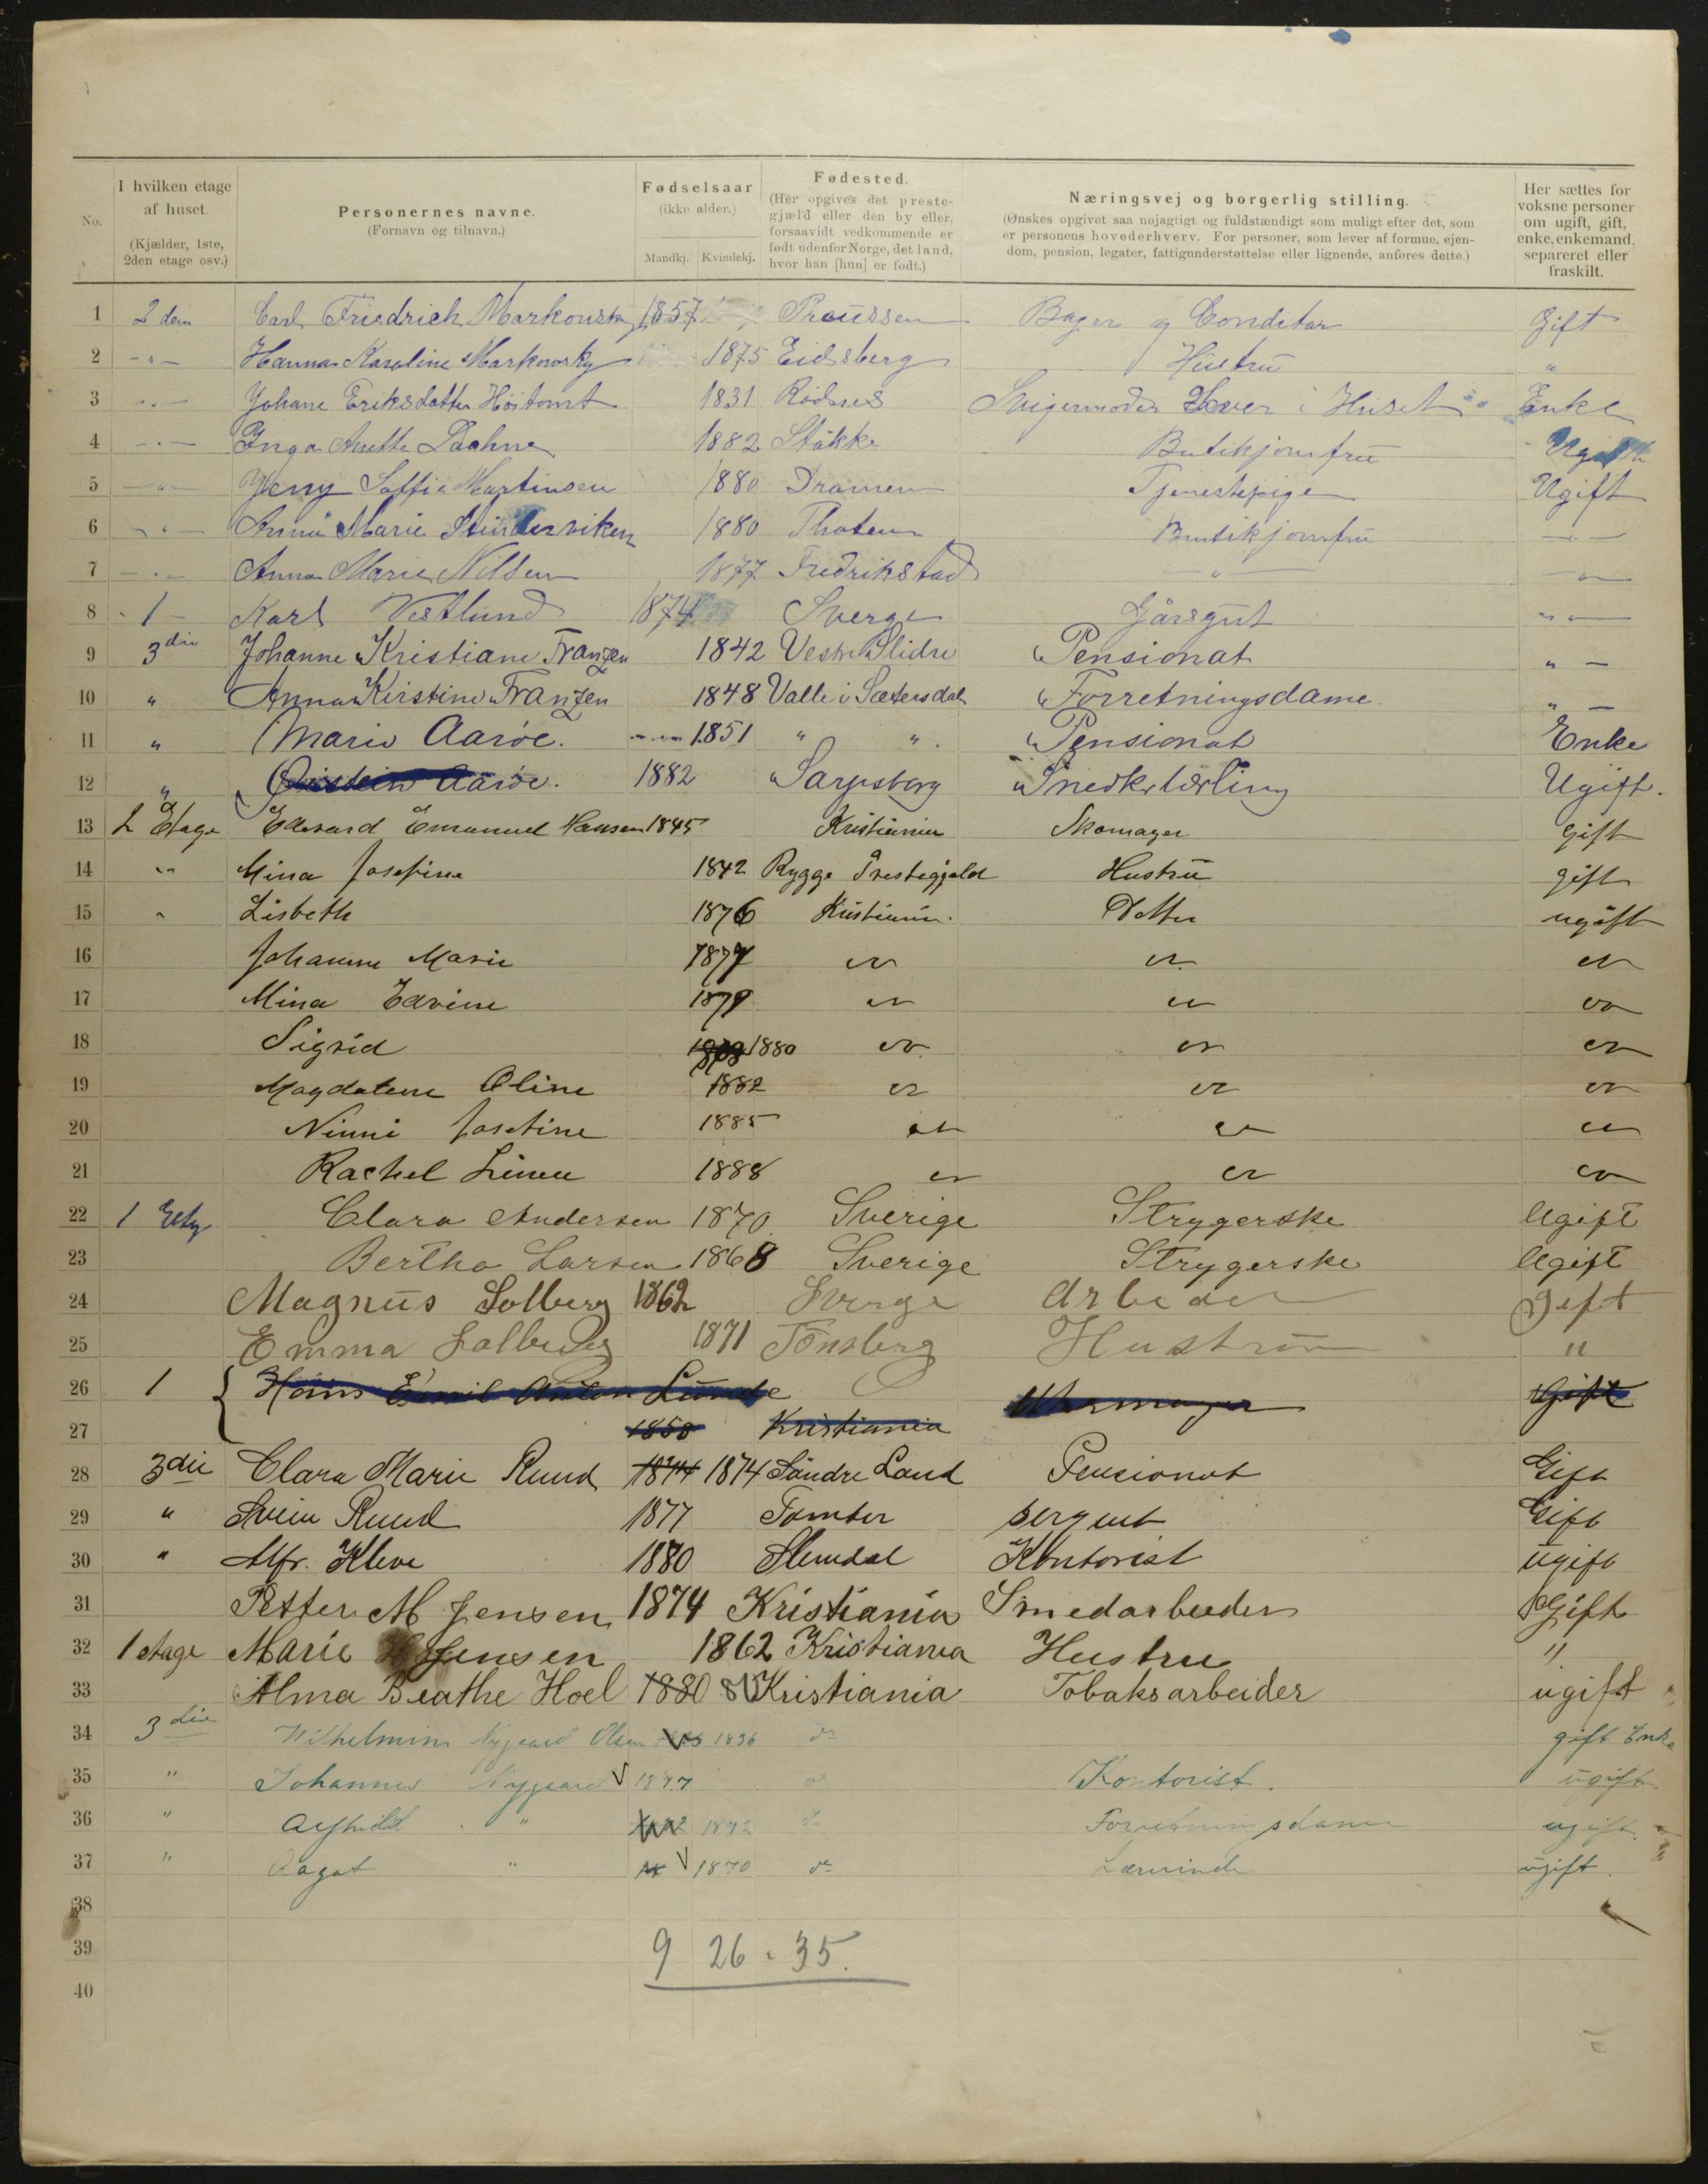 No. I hvilken etage af huset. (Kjælder, 1ste, 2den etage osv.) Personernes navne. (Fornavn og tilnavn.) Fødselsaar (ikke alder.) Mandkj. Kvindekj. Fødested. (Her opgives det prestegjæld eller den by eller, forsaavidt vedkommende er født udenfor Norge, det land, hvor han [hun] er født.) Næringsvej og borgerlig stilling. (Ønskes opgivet saa nøjagtigt og fuldstændigt som muligt efter det, som er personens hovederhverv. For personer, som lever af formue, ejendom, pension, legater, fattigunderstøttelse eller lignende, anføres dette.) Her sættes for voksne personer om ugift, gift, enke, enkemand, separeret eller fraskilt.
1 2 den Carl Friedrich Markousky 1857 Preussen Bager og Conditor Gift
2 - " - Hanna Karoline Markowsky 1875 Eidsberg Hustru "
3 - " - Johane Eriksdatter Höitomt 1831 Rödnes Svigermoder Lever i Huset Enke
4 - " - Inga Anette 1882 Stokke Butikjomfru Ugift
5 - " - Jenny Soffie Martinsen 1880 Dramen Tjenestepige Ugift
6 - " - Anna Marie 1880 Thoten Butikjomfru - " -
7 - " - Anna Marie Nilsen 1877 Fredrikstad - " - - " -
8 - 1 - Karl Vestlund 1874 Sverge Gårsgut - " -
9 3die Johanne Kristiane Franzen 1842 Vestre Slidre Pensionat " -
10 " Anna Kirstine Franzen 1848 Valle i Sætersdal Forretningsdame " -
11 " Marie Aaröe. 1851 " " . Pensionat Enke
12 " Aaröe. 1882 Sarpsborg Snedkerlærling Ugift.
13 2 Etage Edevard Emanuel Hansen 1845 Kristiania Skomager gift
14 " Mina Josefine 1842 Rygge Prestegjeld Hustru gift
15 " Lisbeth 1876 Kristiania. Datter ugift
16 Johanne Marie 1877 " " "
17 Mina Edvine 1879 " " "
18 Sigrid 1880 " " "
19 Magdalene Oline 1882 " " "
20 Ninni Josefine 1885 " " "
21 Rachel 1888 " " "
22 1 Etg Clara Andersen 1870 Sverige Strygerske Ugift
23 Bertha Larsen 1868 Sverige Strygerske Ugift
24 Magnus Solberg 1862 Sverge Arbeder gift
25 Emma Solberg 1871 Tönsberg Hustru "
26 1 { Hans Emil Anton Lunde Uhrmager Gift
27 1850 Kristiania
28 3die Clara Marie Ruud 1874 1874 Söndre Land Pensionat Gift
29 " Svein Ruud 1877 Tomter sergent Gift
30 " Alfr. Kleve 1880 Slemdal Kontorist ugift
31 Petter M Jensen 1874 Kristiania Smedarbeider Gift
32 1 etage Marie Jensen 1862 Kristiania Hustru "
33 Alma Beathe Hoel 1880 80 Kristiania Tobaksarbeider ugift
34 3die Wilhelmine Nygaard Olsen 1836 do gift Enke
35 " Johannes Nygaard 1877 do Kontorist. ugift
36 " Alfhild " 1872 do Forretningsdame ugift.
37 " Aagot " 1870 do Lærerinde ugift.
38
39 9 26 = 35.
40